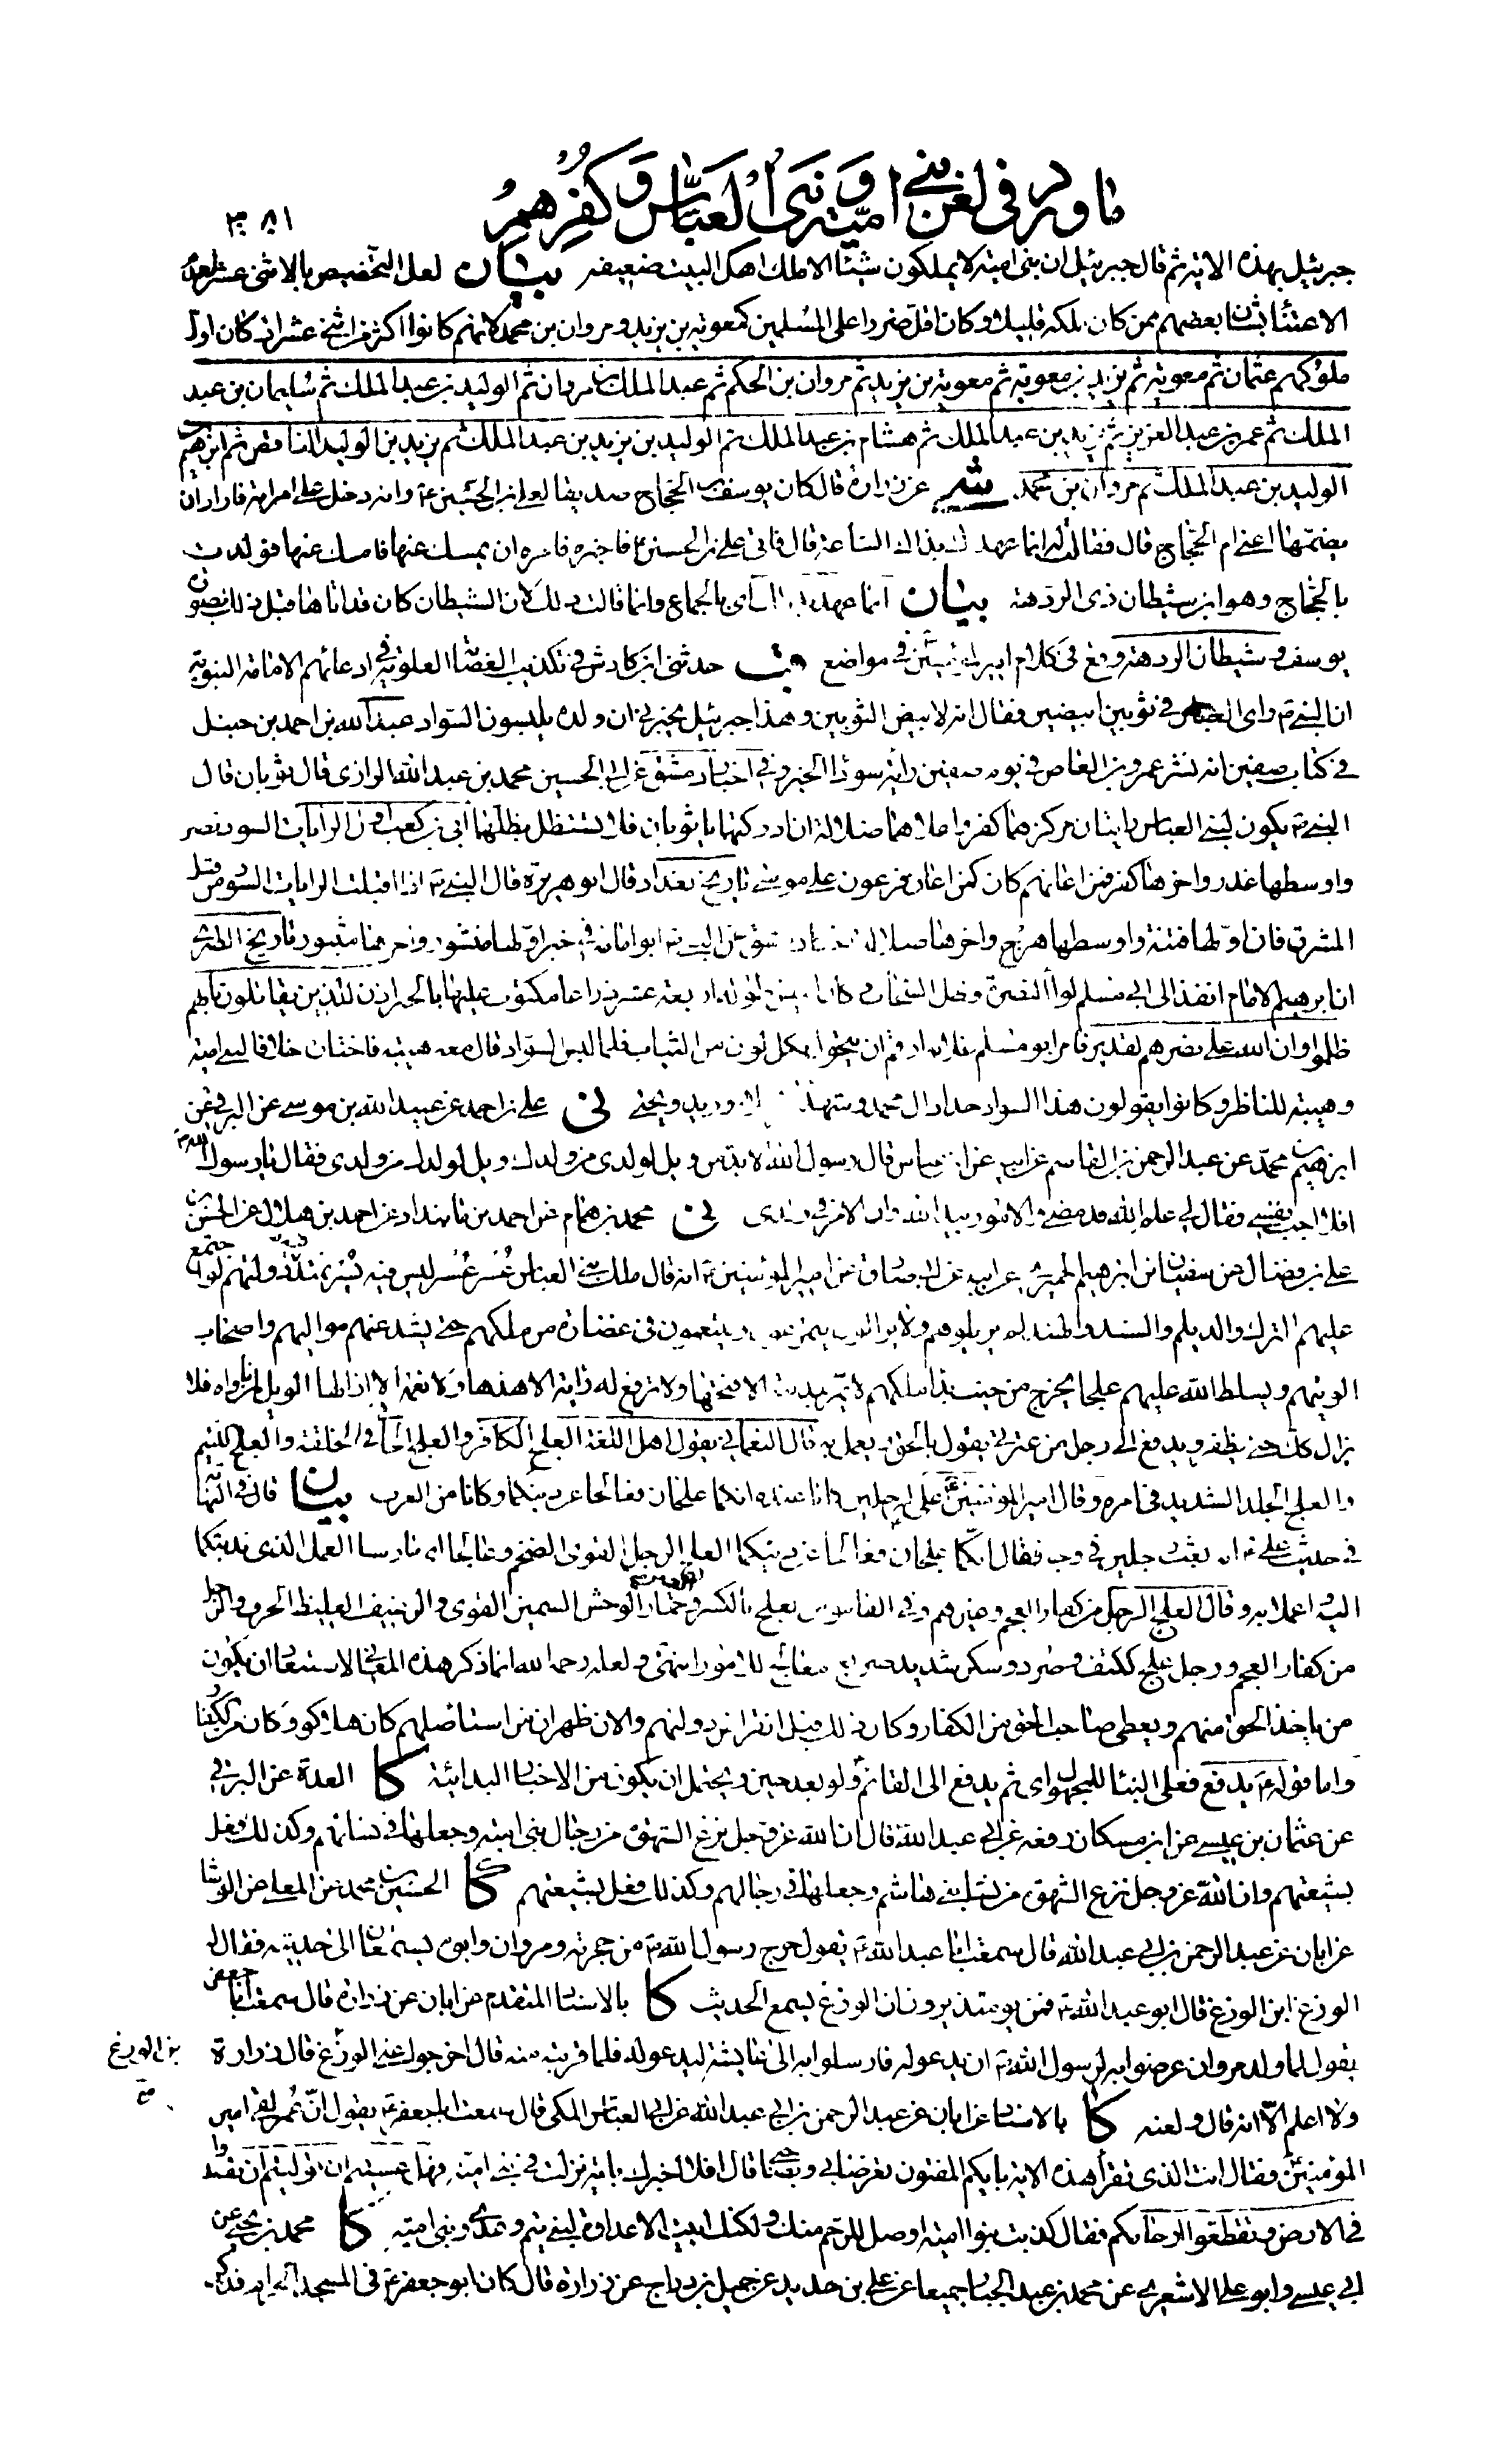 ما ورد فى لعن بنے امية و بنى العباس و كفرهم
٣٨١
جبرئيل بهذه الاية ثم قال جبرئيل ان بنى امية لا يملكون شيئا الا ملك اهل البيت ضعيفه بيان لعل التخصيص بالاثنى عشر لعدم
الاعتناء بشان بعضهم ممن كان ملكه قليلا و كان اقل ضررا على المسلمين كمعوية بن يزيد و مروان بن محمد لانهم كانوا اكثر من اثنى عشر اذ كان اول
ملوكهم عثمان ثم معوية ثم يزيد بن معوية ثم معوية بن يزيد ثم مروان بن الحكم ثم عبد الملك بن مروان ثم الوليد بن عبد الملك ثم سليمان بن عبد
الملك ثم عمر بن عبد العزيز ثم يزيد بن عبد الملك ثم هشام بن عبد الملك ثم الوليد بن يزيد بن عبد الملك ثم يزيد بن الوليد الناقص ثم ابرهيم بن
الوليد بن عبد الملك ثم مروان بن محمد شى عن زرارة قال كان يوسف ابو الحجاج صديقا لعلى بن الحسين ع و انه دخل على امراته فاراد ان
يضمها اعنى ام الحجاج قال فقالت له انما عهدك بذاك الساعة قال فاتى على بن الحسين ع فاخبره فامره ان يمسك عنها فامسك عنها فولدت
بالحجاج و هو ابن شيطان ذى الردهة بيان انما عهدك بذاك اى بالجماع و انما قالت ذلك لان الشيطان كان قد اتاها قبل ذلك بصورة
يوسف و شيطان الردهة وقع فى كلام امير المؤمنين فى مواضع قب حدثنى ابن كادش فى تكذيب العصابة العلوية فى ادعائهم الامامة النبوية
ان النبى ص راى العباس فى ثوبين ابيضين فقال انه لابيض الثوبين و هذا جبرئيل يخبرنى ان ولده يلبسون السواد عبد الله بن احمد بن حنبل
فى كتاب صفين انه نشر عمرو بن العاص فى يوم صفين راية سوداء الخبر و فى اخبار دمشق عن ابى الحسين محمد بن عبد الله الرازى قال ثوبان قال
النبى ص يكون لبنى العباس رايتان مركزهما كفر و اعلاهما ضلالة ان ادركتها يا ثوبان فلا تستظل بظلها ابى بن كعب اول الرايات السود نصر
و اوسطها غدر و اخرها كفر فمن اعانهم كان كمن اعان فرعون على موسى تاريخ بغداد قال ابو هريرة قال النبى ص اذا اقبلت الرايات السود من قبل
المشرق فان اولها فتنة و اوسطها هرج و اخرها ضلالة اخبار دمشق عن النبى ص ابو امامة فى خبر اولها منشور و اخرها مثبور تاريخ الطبرى
ان ابرهيم الامام انفذ الى ابى مسلم لواء النصرة و ظل السحاب و كان ابيض طوله اربعة عشر ذراعا مكتوب عليها بالحبر اذن للذين يقاتلون بانهم
ظلموا و ان الله على نصرهم لقدير فامر ابو مسلم غلامه ارقم ان يتحول بكل لون من الثياب فلما لبس السواد قال معه هيبة فاختاره خلافا لبنى امية
و هيبة للناظر و كانوا يقولون هذا السواد حداد ال محمد و شهداء كربلا و زيد و يحيى نى على بن احمد عن عبيد الله بن موسى عن البرقى عن
ابرهيم بن محمد عن عبد الرحمن بن القاسم عن ابيه عن ابن عباس قال رسول الله لابيه ويل لولدى من ولدك و ويل لولدك من ولدى فقال يا رسول الله
افلا اجب نفسى فقال لى علم الله قد مضى و الامور بيد الله و ان الامر فى ولدى نى محمد بن همام عن احمد بن مابنداد عن احمد بن هلال عن الحسن بن
على بن فضال عن سفيان بن ابرهيم الجريرى عن ابيه عن ابى صادق عن امير المؤمنين ع انه قال ملك بنى العباس عسر عسر ليس فيه يسر تمتد دولتهم لو اجتمع
عليهم الترك و الديلم و السند و الهند لم يزيلوهم و لا يزالون يتمرغون و يتنعمون فى غضارة من ملكهم حتى يشذ عنهم مواليهم و اصحاب
الويتهم و يسلط الله عليهم علجا يخرج من حيث بدا ملكهم لا يمر بمدينة الا فتحها و لا ترفع له راية الا هدها و لا نعمة الا ازالها الويل لمن ناواه فلا
يزال كذلك حتى يظفر و يدفع الى رجل من عترتى يقول بالحق و يعمل به قال النعمانى يقول اهل اللغة العلج الكافر و العلج الجافى الخلقة و العلج اللئيم
و العلج الجلد الشديد فى امره و قال امير المؤمنين ع لرجلين كانا عنده انكما علجان فعالجا عن دينكما و كانا من العرب بيان قال فى النهاية
فى حديث على ع انه بعث رجلين فى وجه فقال انكما علجان فعالجا عن دينكما العلج الرجل القوى الضخم و عالجا اى مارسا العمل الذى ندبتكما
اليه و اعملا به و قال العلج الرجل من كفار العجم و غيرهم و فى القاموس العلج بالكسر و حمار الوحش السمين القوى و الرغيف الغليظ الحرف و الرجل
من كفار العجم و رجل علج ككتف و صرد و سكر شديد صريع معالج للامور انتهى و لعله رحمه الله انما ذكر هذه المعانى لاستبعاد ان يكون
من ياخذ الحق منهم و يعطى صاحب الحق من الكفار و كان ذلك قبل انقراض دولتهم و الان ظهر ان من استاصلهم كان هلاكو و كان من الكفار
و اما قوله ع يدفع فعلى البناء للمجهول اى ثم يدفع الى القائم و لو بعد حين و يحتمل ان يكون من الاخبار البدائية كا العدة عن البرقى
عن عثمان بن عيسى عن ابن مسكان رفعه عن ابى عبد الله ع قال ان الله عز و جل نزع الشهوة من رجال بنى امية و جعلها فى نسائهم و كذلك فعل
بشيعتهم و ان الله عز و جل نزع الشهوة من نساء بنى هاشم و جعلها فى رجالهم و كذلك فعل بشيعتهم كا الحسين بن محمد عن المعلى عن الوشاء
عن ابان عن عبد الرحمن بن ابى عبد الله قال سمعت ابا عبد الله ع يقول خرج رسول الله ص من حجرته و مروان و ابوه يستمعان الى حديثه فقال له
الوزغ ابن الوزغ قال ابو عبد الله ع فمن يومئذ يرون ان الوزغ يسمع الحديث كا بالاسناد المتقدم عن ابان عن زرارة قال سمعت ابا جعفر
يقول لما ولد مروان عرضوا به لرسول الله ص ان يدعو له فارسلوا به الى عايشة ليدعو له فلما قربته منه قال اخرجوا عنى الوزغ قال زرارة
بن الوزغ
صح
و لا اعلم الا انه قال و لعنه كا بالاسناد عن ابان عن عبد الرحمن بن ابى عبد الله عن ابى العباس المكى قال سمعت ابا جعفر ع يقول ان عمر لقى امير
المؤمنين فقال انت الذى تقرأ هذه الاية بايكم المفتون تعرض بى و بصاحبى قال افلا اخبرك باية نزلت فى بنى امية فهل عسيتم ان توليتم ان تفسدوا
فى الارض و تقطعوا ارحامكم فقال كذبت بنو امية اوصل للرحم منك و لكنك ابيت الا عداوة لبنى تيم و عدى و بنى امية كا محمد بن يحيى عن
ابى عيسى و ابو على الاشعرى عن محمد بن عبد الجبار جميعا عن على بن حديد عن جميل بن دراج عن زرارة قال كان ابو جعفر ع فى المسجد الحرام فذكر